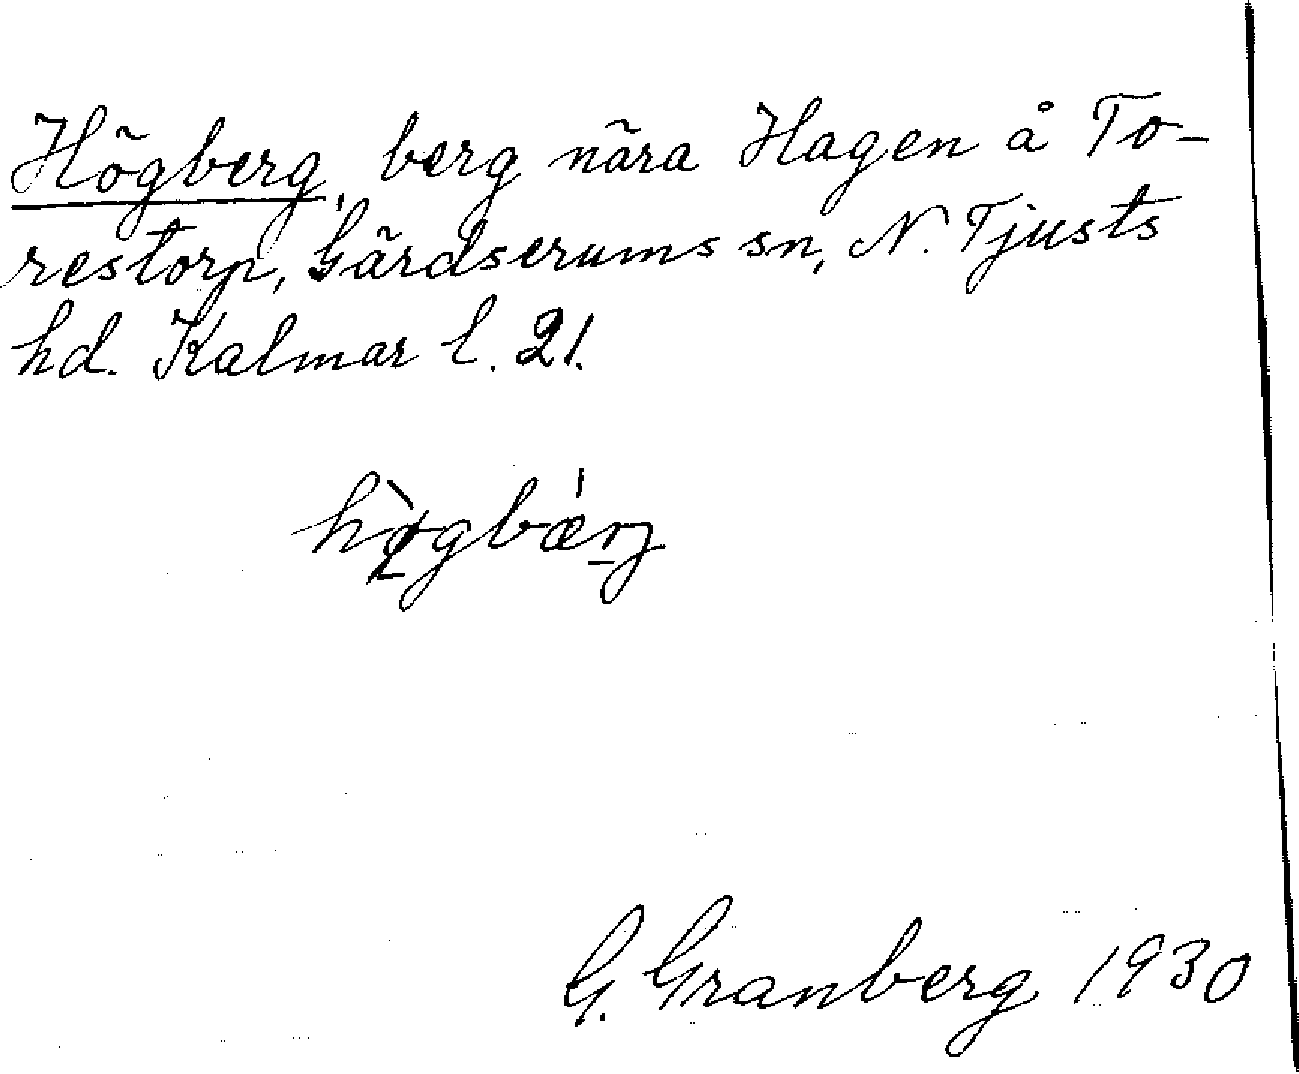 Högberg, berg nära Hagen å To-
restorp, Gärdserums sn, N. Tjusts
hd. Kalmar l. 21.
hø̀gbǽrj
G. Granberg 1930